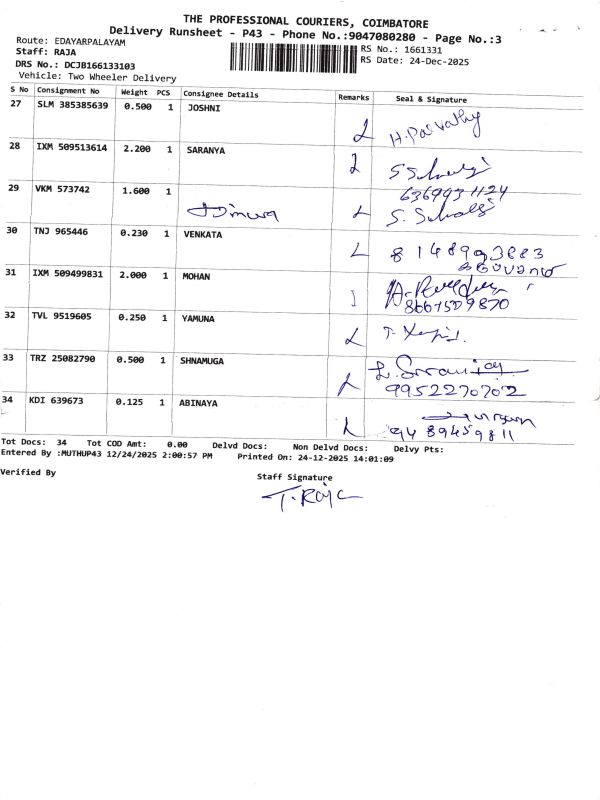 THE PROFESSIONAL COURIERS, COIMBATORE
Delivery Runsheet - P43 - Phone No.:9047080280 - Page No.:3
Route: EDAYARPALAYAM
RS No.: 1661331
Staff: RAJA
RS Date: 24-Dec-2025
DRS No.: DCJB166133103
Vehicle: Two Wheeler Delivery
S No Consignment No Weight PCS Consignee Details Remarks Seal & Signature
27 SLM 385385639 0.500 1 JOSHNI L H. Parvathy
28 IXM 509513614 2.200 1 SARANYA
29 VKM 573742 1.600 1
30 TNJ 965446 0.230 1 VENKATA L
31 IXM 509499831 2.000 1 MOHAN
32 TVL 9519605 0.250 1 YAMUNA L
33 TRZ 25082790 0.500 1 SHNAMUGA L
9952270702
34 KDI 639673 0.125 1 ABINAYA L
9489459811
Tot Docs: 34 Tot COD Amt: 0.00 Delvd Docs: Non Delvd Docs: Delvy Pts:
Entered By :MUTHUP43 12/24/2025 2:00:57 PM Printed On: 24-12-2025 14:01:09
Verified By
Staff Signature
T. Raja